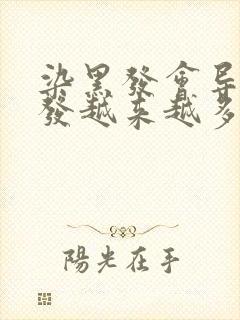 染黑發會导
發越来越多
陽光在手